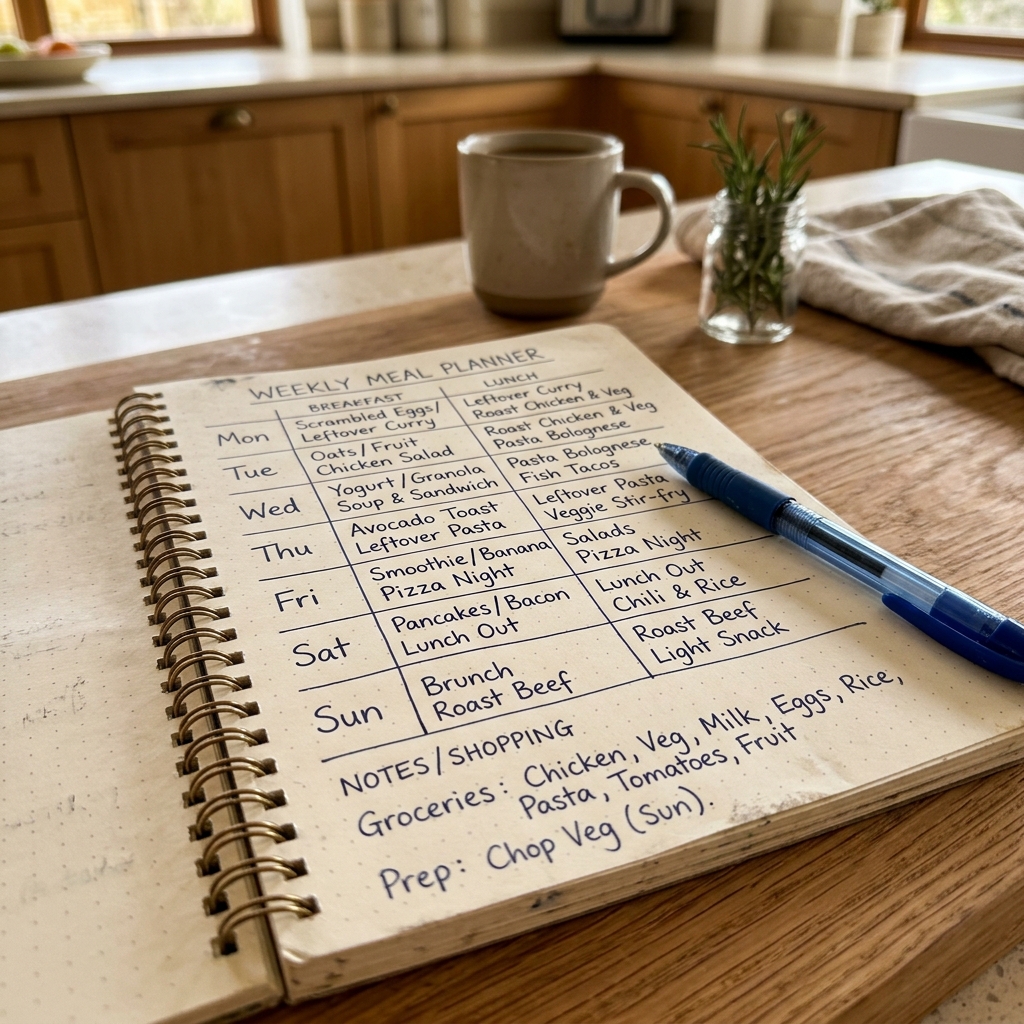 WEEKLY MEAL PLANNER
BREAKFAST LUNCH
Mon Scrambled Eggs/ Leftover Curry
Leftover Curry Roast Chicken & Veg
Tue Oats/Fruit Roast Chicken & Veg
Chicken Salad Pasta Bolognese
Wed Yogurt/Granola Pasta Bolognese
Soup & Sandwich Fish Tacos
Thu Avocado Toast Leftover Pasta
Leftover Pasta Veggie Stir-fry
Fri Smoothie/Banana Salads
Pizza Night Pizza Night
Sat Pancakes/Bacon Lunch Out
Lunch Out Chili & Rice
Sun Brunch Roast Beef
Roast Beef Light Snack
NOTES/SHOPPING
Groceries: Chicken, Veg, Milk, Eggs, Rice,
Pasta, Tomatoes, Fruit
Prep: Chop Veg (Sun).